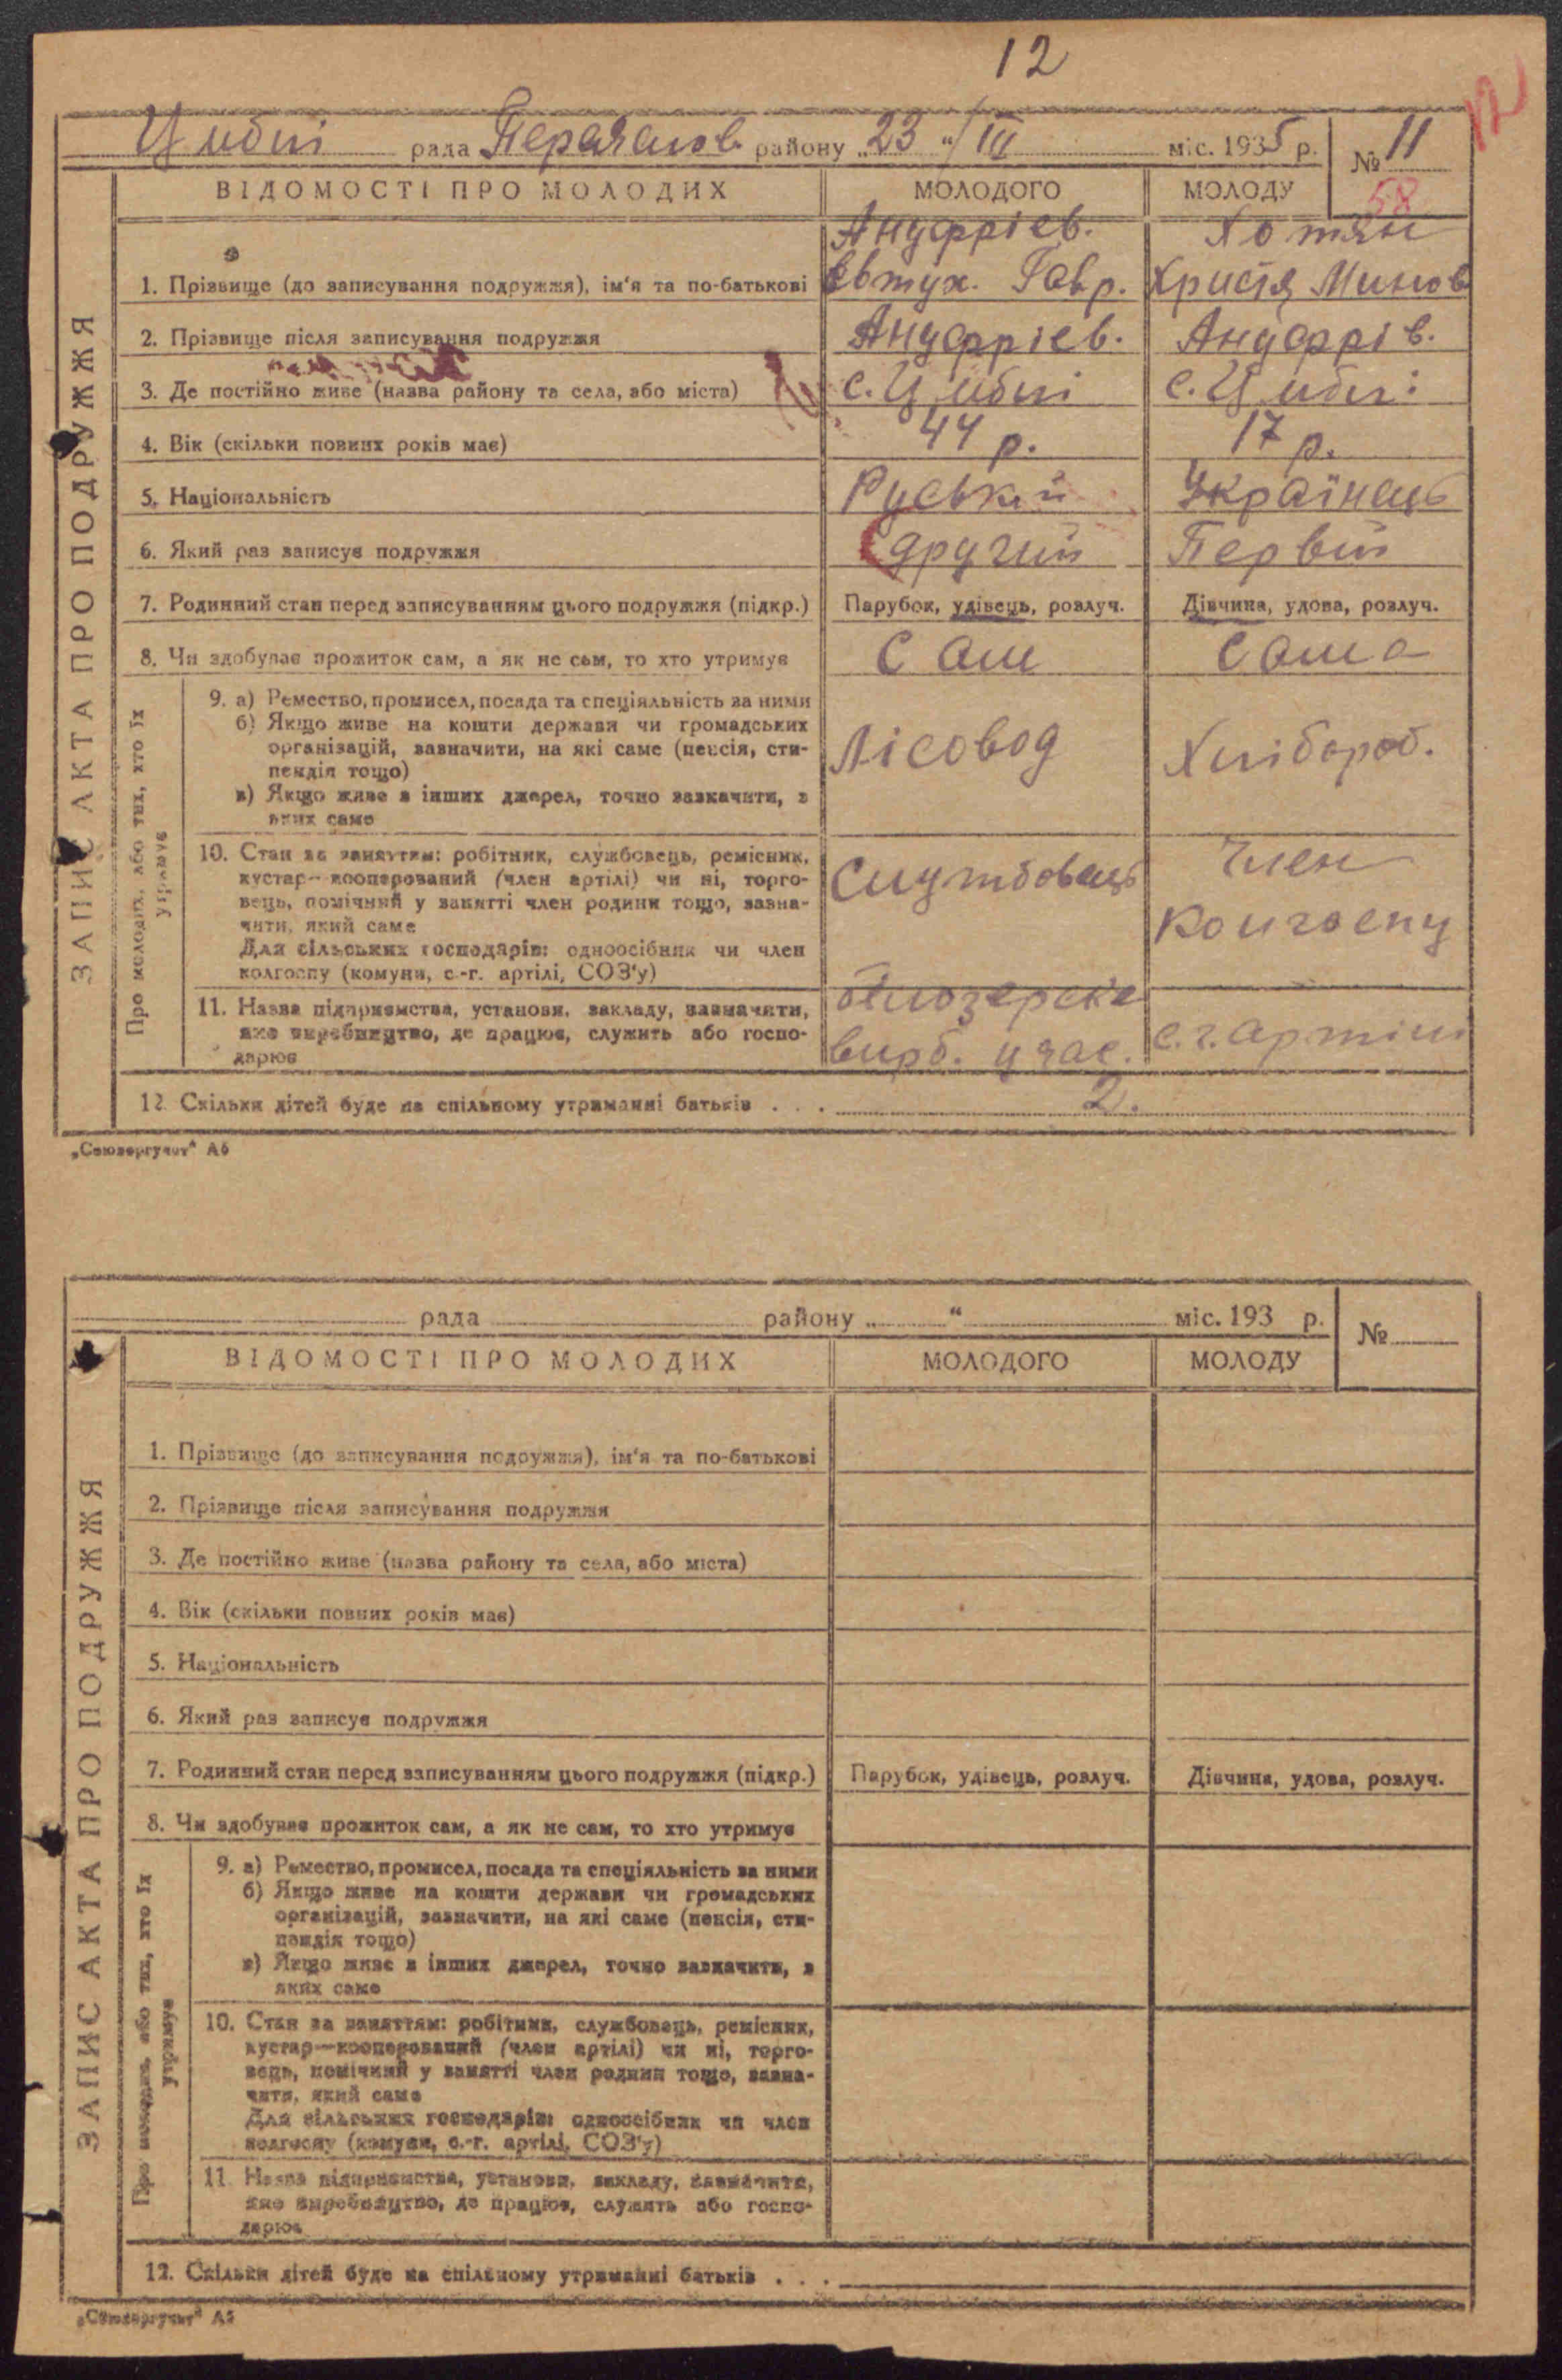 12
12
Циблі рада Переяслов. району „23 “/III міс. 1935 р. № 11
58
ВІДОМОСТІ ПРО МОЛОДИХ МОЛОДОГО МОЛОДУ
Ануфрієв. Хотян
1. Прізвище (до записування подружжя), ім'я та по-батькові Євтух. Гавр. Христя Минов
2. Прізвище після записування подружжя Ануфрієв. Ануфрів.
3. Де постійно живе (назва району та села, або міста) с. Циблі с. Циблі
4. Вік (скільки повних років має) 44 р. 17 р.
5. Національність Руський Українець
6. Який раз записує подружжя другий Первий
7. Родинний стан перед записуванням цього подружжя (підкр.) Парубок, удівець, розлуч. Дівчина, удова, розлуч.
8. Чи здобуває прожиток сам, а як не сам, то хто утримує Сам Сама
9. а) Ремество, промисел, посада та спеціяльність за ними
б) Якщо живе на кошти держави чи громадських
організацій, зазначити, на які саме (пенсія, сти-
пендія тощо) Лісовод Хлібороб.
в) Якщо живе з інших джерел, точно зазначити, з
яких саме
10. Стан за заняттям: робітник, службовець, ремісник,
кустар—кооперований (член артілі) чи ні, торго-
вець, помічний у занятті член родини тощо, зазна-
чити, який саме
Для сільських господарів: одноосібник чи член
колгоспу (комуни, с.-г. артілі, СОЗ'у)
Службовець Член
колгоспу
11. Назва підприємства, установи, закладу, зазначити,
яке виробництво, де працює, служить або госпо-
дарює
вироб. учас. с.г. артілі
12. Скільки дітей буде на спільному утриманні батьків . . . 2.
ЗАПИС АКТА ПРО ПОДРУЖЖЯ
Про молодих, або тих, хто їх
утримує
„Союзоргучот“ А5
рада району „ “ міс. 193 р. №
ВІДОМОСТІ ПРО МОЛОДИХ МОЛОДОГО МОЛОДУ
1. Прізвище (до записування подружжя), ім'я та по-батькові
2. Прізвище після записування подружжя
3. Де постійно живе (назва району та села, або міста)
4. Вік (скільки повних років має)
5. Національність
6. Який раз записує подружжя
7. Родинний стан перед записуванням цього подружжя (підкр.) Парубок, удівець, розлуч. Дівчина, удова, розлуч.
8. Чи здобуває прожиток сам, а як не сам, то хто утримує
9. а) Ремество, промисел, посада та спеціяльність за ними
б) Якщо живе на кошти держави чи громадських
організацій, зазначити, на які саме (пенсія, сти-
пендія тощо)
в) Якщо живе з інших джерел, точно зазначити, з
яких саме
10. Стан за заняттям: робітник, службовець, ремісник,
кустар—кооперований (член артілі) чи ні, торго-
вець, помічний у занятті член родини тощо, зазна-
чити, який саме
Для сільських господарів: одноосібник чи член
колгоспу (комуни, с.-г. артілі, СОЗ'у)
11. Назва підприємства, установи, закладу, зазначити,
яке виробництво, де працює, служить або госпо-
дарює
12. Скільки дітей буде на спільному утриманні батьків . . .
ЗАПИС АКТА ПРО ПОДРУЖЖЯ
Про молодих, або тих, хто їх
утримує
„Союзоргучот“ А5